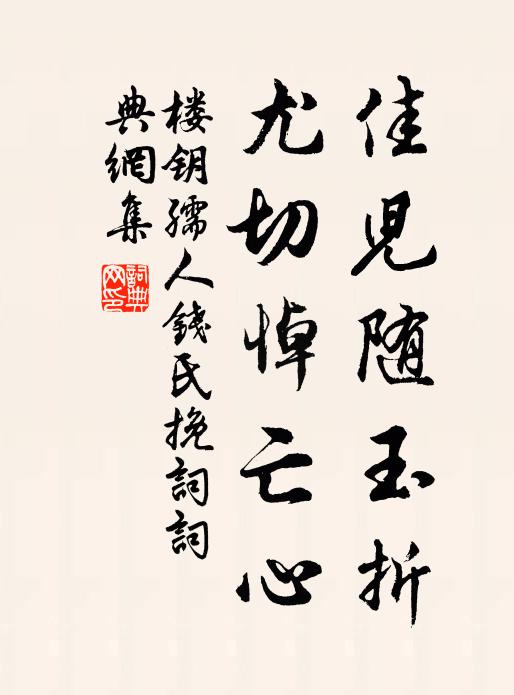 佳児随玉折
尤切悼亡心
楼钥孺人錢氏挽詞詞
典網集
詞典
网印